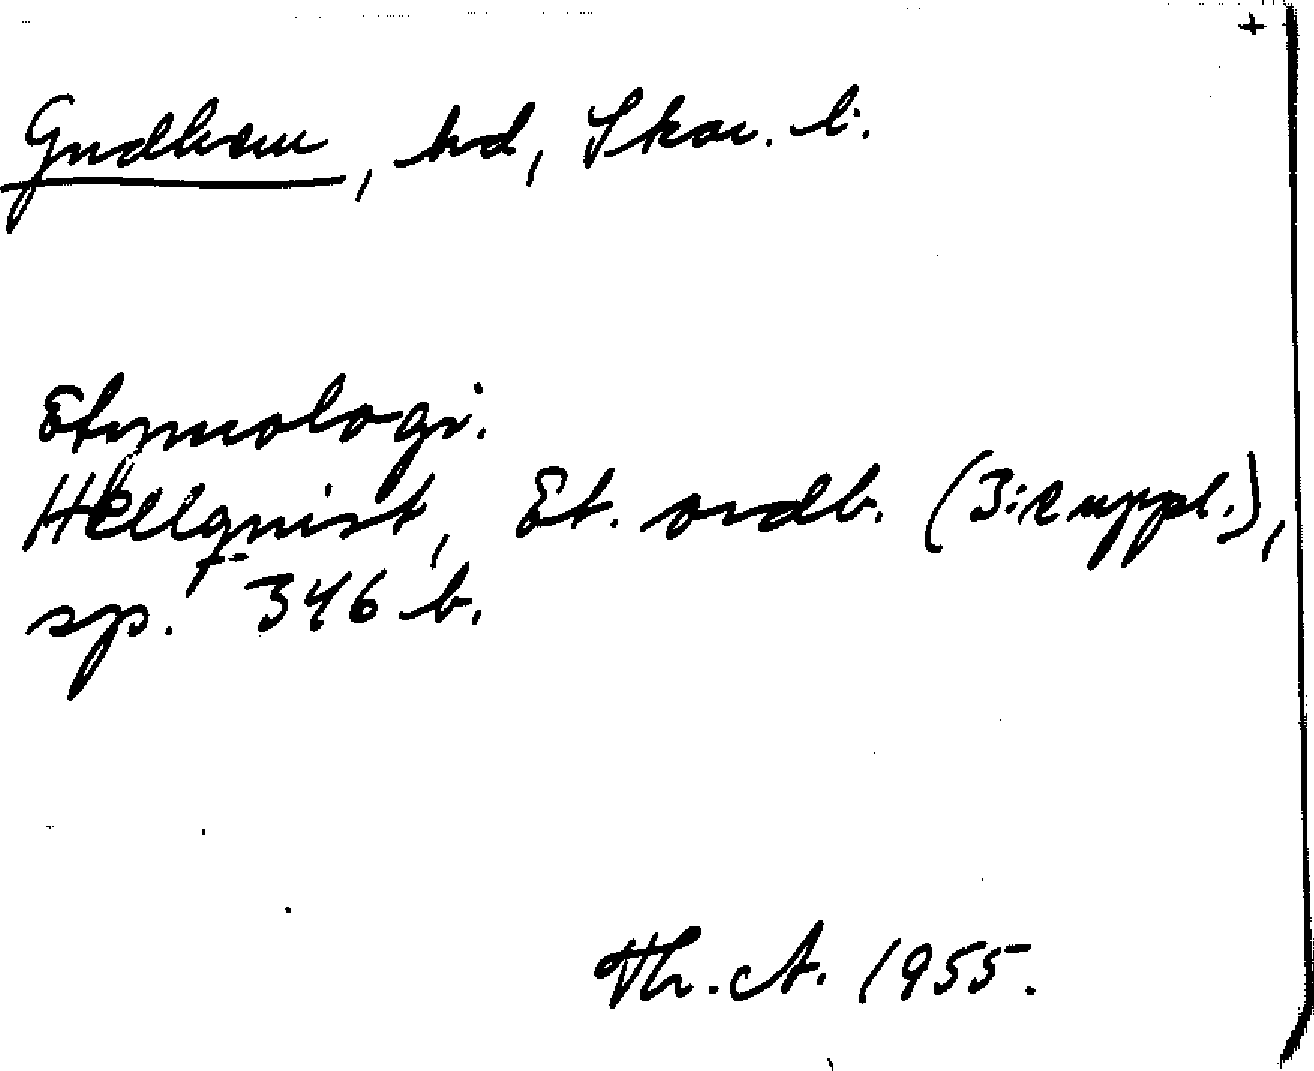 +
Gudhem, hd, Skar. l.
Etymologi.
Hellquist, Et. ordb. (3:e uppl.),
sp. 346 b.
Th. A. 1955.